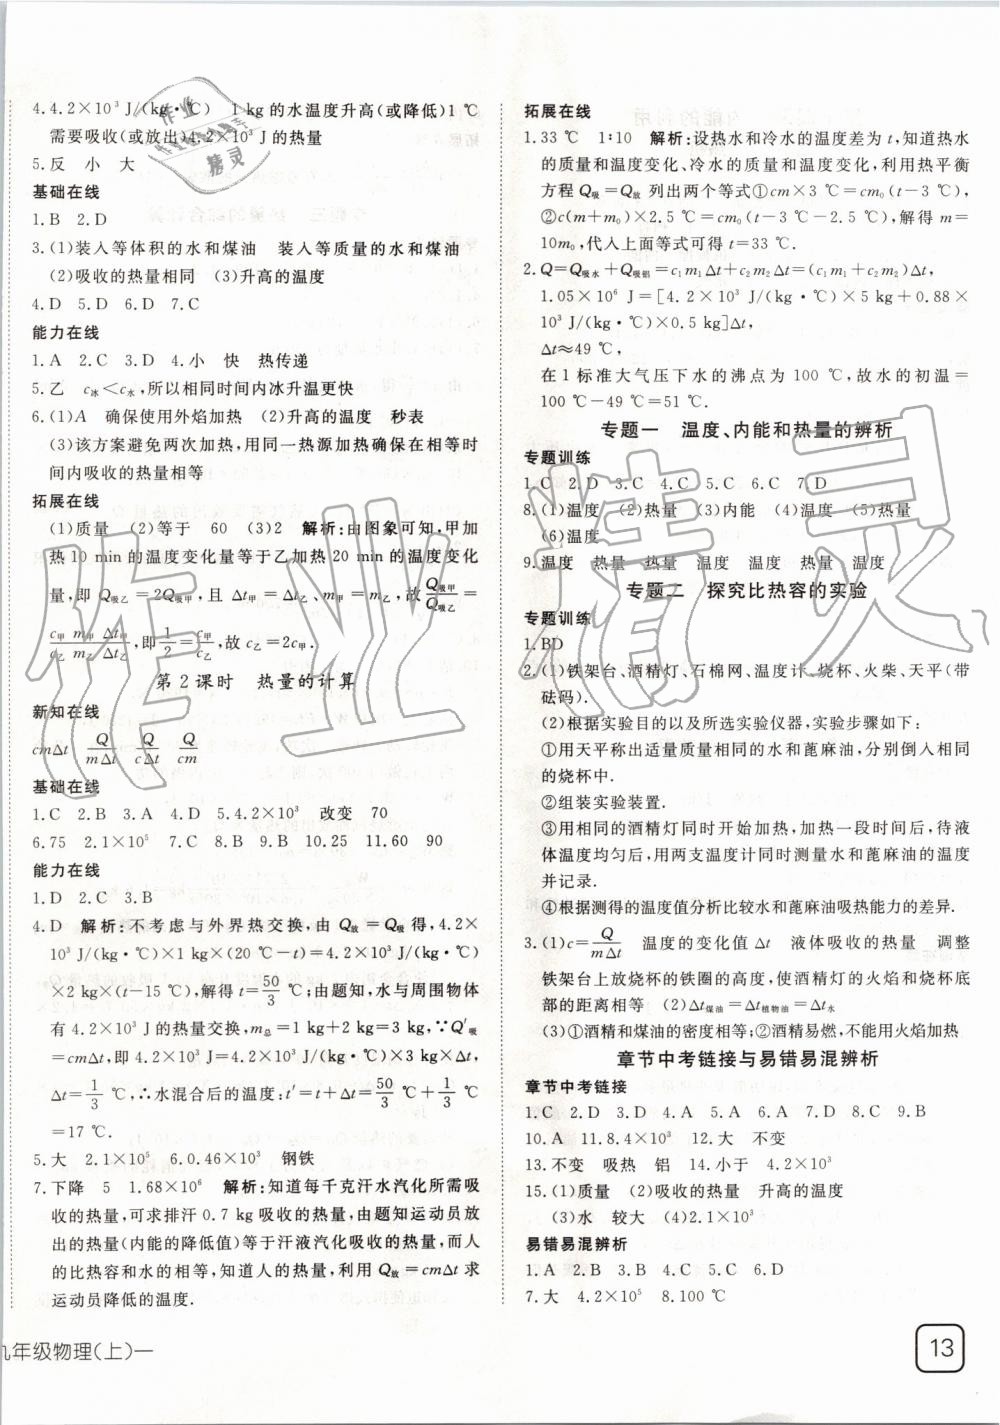 4.4.2×10³ J/(kg·℃)　1 kg的水温度升高(或降低)1 ℃
需要吸收(或放出)4.2×10³ J的热量
5.反　小　大
基础在线
1.B　2.D
3.(1)装入等体积的水和煤油　装入等质量的水和煤油
(2)吸收的热量相同　(3)升高的温度
4.D　5.D　6.D　7.C
能力在线
1.A　2.C　3.D　4.小　快　热传递
5.乙　c冰＜c水,所以相同时间内冰升温更快
6.(1)A　确保使用外焰加热　(2)升高的温度　秒表
(3)该方案避免两次加热,用同一热源加热确保在相等时
间内吸收的热量相等
拓展在线
(1)质量　(2)等于　60　(3)2　解析:由图象可知,甲加
热10 min的温度变化量等于乙加热20 min的温度变化
量,即Q吸乙=2Q吸甲,且Δt甲=Δt乙、m甲=m乙,故Q吸甲/Q吸乙=
c甲m甲Δt甲/c乙m乙Δt乙,即1/2=c甲/c乙,故c乙=2c甲.
第2课时　热量的计算
新知在线
cmΔt　Q/mΔt　Q/cΔt　Q/cm
基础在线
1.C　2.B　3.A　4.D　5.4.2×10³　改变　70
6.75　2.1×10⁵　7.C　8.B　9.B　10.25　11.60　90
能力在线
1.D　2.C　3.B
4.D　解析:不考虑与外界热交换,由Q放=Q吸得,4.2×
10³ J/(kg·℃)×1 kg×(20 ℃-t)=4.2×10³ J/(kg·℃)
×2 kg×(t-15 ℃),解得t=50/3 ℃;由题知,水与周围物体
有4.2×10³ J的热量交换,m总=1 kg+2 kg=3 kg,∵Q′吸
=cmΔt,即4.2×10³ J=4.2×10³ J/(kg·℃)×3 kg×Δt,
Δt=1/3 ℃,∴水混合后的温度:t′=t+Δt=50/3 ℃+1/3 ℃
=17 ℃.
5.大　2.1×10⁵　6.0.46×10³　钢铁
7.下降　5　1.68×10⁶　解析:知道每千克汗水汽化所需吸
收的热量,可求排汗0.7 kg吸收的热量,由题知运动员放
出的热量(内能的降低值)等于汗液汽化吸收的热量,而人
的比热容和水的相等,知道人的质量,利用Q放=cmΔt求
运动员降低的温度.
九年级物理(上)一
拓展在线
1.33 ℃　1∶10　解析:设热水和冷水的温度差为t,知道热水
的质量和温度变化、冷水的质量和温度变化,利用热平衡
方程Q吸=Q放列出两个等式①cm×3 ℃=cm₀(t-3 ℃),
②c(m+m₀)×2.5 ℃=cm₀(t-3 ℃-2.5 ℃),解得m=
10m₀,代入上面等式可得t=33 ℃.
2.Q=Q吸水+Q吸铝=c₁m₁Δt+c₂m₂Δt=(c₁m₁+c₂m₂)Δt,
1.05×10⁶ J=[4.2×10³ J/(kg·℃)×5 kg+0.88×
10³ J/(kg·℃)×0.5 kg]Δt,
Δt≈49 ℃,
在1标准大气压下水的沸点为100 ℃,故水的初温=
100 ℃-49 ℃=51 ℃.
专题一　温度、内能和热量的辨析
专题训练
1.C　2.D　3.D　4.C　5.C　6.C　7.D
8.(1)温度　(2)热量　(3)内能　(4)温度　(5)热量
(6)温度
9.温度　热量　热量　温度　温度　热量　温度
专题二　探究比热容的实验
专题训练
1.BD
2.(1)铁架台、酒精灯、石棉网、温度计、烧杯、火柴、天平(带
砝码).
(2)根据实验目的以及所选实验仪器,实验步骤如下:
①用天平称出适量质量相同的水和蓖麻油,分别倒入相同
的烧杯中.
②组装实验装置.
③用相同的酒精灯同时开始加热,加热一段时间后,待液
体温度均匀后,用两支温度计同时测量水和蓖麻油的温度
并记录.
④根据测得的温度值分析比较水和蓖麻油吸热能力的差异.
3.(1)c=Q/mΔt　温度的变化值Δt　液体吸收的热量　调整
铁架台上放烧杯的铁圈的高度,使酒精灯的火焰和烧杯底
部的距离相等　(2)Δt煤油=Δt植物油=Δt水
(3)①酒精和煤油的密度相等;②酒精易燃,不能用火焰加热
章节中考链接与易错易混辨析
章节中考链接
1.C　2.D　3.D　4.A　5.A　6.A　7.D　8.C　9.B
10.A　11.8.4×10³　12.大　不变
13.不变　吸热　铝　14.小于　4.2×10³
15.(1)质量　(2)吸收的热量　升高的温度
(3)水　较大　(4)2.1×10³
易错易混辨析
1.A　2.B　3.B　4.C　5.C　6.D
7.大　4.2×10⁵　8.100 ℃
13
作业精灵